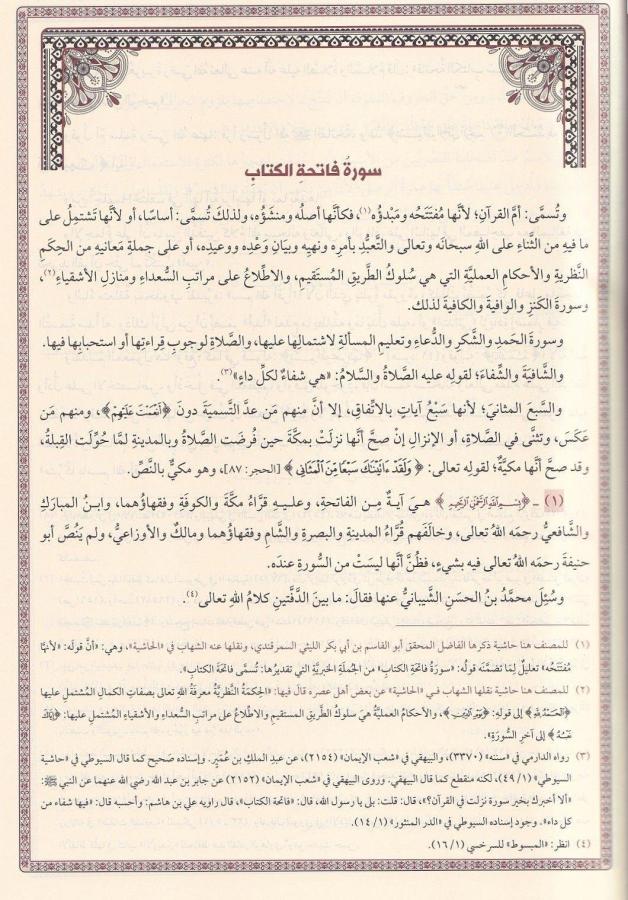 سورةُ فاتحةِ الكتابِ
وتُسمَّى: أمَّ القرآنِ؛ لأنَّها مُفتَتَحُه ومَبْدؤُه(١)، فكأنَّها أصلُه ومنشَؤُه، ولذلكَ تُسمَّى: أساسًا، أو لأنَّها تَشْتمِلُ على
ما فيهِ من الثَّناءِ على اللهِ سبحانَه وتعالى والتَّعبُّدِ بأمرِه ونهيِه وبيانِ وَعْدِه ووعيدِه، أو على جملةِ مَعانيهِ من الحِكَمِ
النَّظريةِ والأحكامِ العمليَّةِ التي هي سُلوكُ الطَّريقِ المُستَقيمِ، والاطِّلاعُ على مراتبِ السُّعداءِ ومنازلِ الأشقياءِ(٢)،
وسورةَ الكَنْزِ والوافيةَ والكافيةَ لذلك.
وسورةَ الحَمدِ والشُّكرِ والدُّعاءِ وتعليمِ المسألةِ لاشتمالِها عليها، والصَّلاةِ لوجوبِ قِراءتِها أو استحبابِها فيها.
والشَّافيةَ والشِّفاءَ؛ لقولِه عليه الصَّلاةُ والسَّلامُ: «هي شفاءٌ لكلِّ داءٍ»(٣)
والسَّبعَ المثانيَ؛ لأنها سَبْعُ آياتٍ بالاتِّفاقِ، إلا أنَّ منهم مَن عدَّ التَّسميةَ دونَ ﴿أَنْعَمْتَ عَلَيْهِمْ﴾، ومنهم مَن
عكَسَ، وتثنَّى في الصَّلاةِ، أو الإنزالِ إنْ صحَّ أنَّها نزلَتْ بمكَّةَ حين فُرضَت الصَّلاةُ وبالمدينةِ لمَّا حُوِّلَت القِبلةُ،
وقد صحَّ أنَّها مكيَّةٌ؛ لقولِه تعالى: ﴿وَلَقَدْ ءَاتَيْنَٰكَ سَبْعًا مِّنَ ٱلْمَثَانِى﴾ [الحجر: ٨٧]، وهو مكيٌّ بالنَّصِّ.
(١) - ﴿بِسْمِ ٱللَّهِ ٱلرَّحْمَٰنِ ٱلرَّحِيمِ﴾ هيَ آيةٌ مِن الفاتحةِ، وعليهِ قرَّاءُ مكَّةَ والكوفةِ وفقهاؤُهما، وابنُ المباركِ
والشَّافعيُّ رحمَه اللهُ تعالى، وخالَفَهم قُرَّاءُ المدينةِ والبصرةِ والشَّامِ وفقهاؤُهما ومالكٌ والأوزاعيُّ، ولم يَنُصَّ أبو
حنيفةَ رحمَه اللهُ تعالى فيهِ بشيءٍ، فظُنَّ أنَّها ليسَتْ من السُّورةِ عندَه.
وسُئِلَ محمَّدُ بنُ الحسَنِ الشَّيبانيُّ عنها فقالَ: ما بينَ الدَّفَّتينِ كلامُ اللهِ تعالى(٤).
(١) للمصنف هنا حاشية ذكرها الفاضل المحقق أبو القاسم بن أبي بكر الليثي السمرقندي، ونقلها عنه الشهاب في «الحاشية»، وهي: «أنَّ قولَه: «لأنَّها
مُفتَتَحُه» تعليلٌ لِمَا تضمَّنَه قولُه: «سورةُ فاتحةِ الكتابِ» من الجُملةِ الخبريَّةِ التي تقديرُها: تُسمَّى فاتحةَ الكتابِ».
(٢) للمصنف هنا حاشية نقلها الشهاب في «الحاشية» عن بعض أهل عصره قال فيها: «الحِكمةُ النَّظريَّةُ معرفةُ اللهِ تعالى بصفاتِ الكمالِ المُشتملِ عليها
﴿ٱلْحَمْدُ لِلَّهِ﴾ إلى قولِه: ﴿يَوْمِ ٱلدِّينِ﴾، والأحكامُ العمليَّةُ هيَ سلوكُ الطَّريقِ المستقيمِ والاطِّلاعُ على مراتبِ السُّعداءِ والأشقياءِ المُشتملِ عليها: ﴿إِيَّاكَ
نَعْبُدُ﴾ إلى آخرِ السُّورةِ».
(٣) رواه الدارمي في «سننه» (٣٣٧٠)، والبيهقي في «شعب الإيمان» (٢١٥٤)، عن عبدِ الملكِ بنِ عُمَيرٍ. وإسناده صَحيح كما قال السيوطي في «حاشية
السيوطي» (١/ ٤٩)، لكنه منقطع كما قال البيهقي. وروى البيهقي في «شعب الإيمان» (٢١٥٢) عن جابر بن عبد الله رضي الله عنهما عن النبي ﷺ:
«ألا أخبرك بخير سورة نزلت في القرآن؟»، قال: قلت: بلى يا رسول الله، قال: «فاتحة الكتاب»، قال راويه علي بن هاشم: وأحسبه قال: «فيها شفاء من
كل داء». وجود إسناده السيوطي في «الدر المنثور» (١/ ١٤).
(٤) انظر: «المبسوط» للسرخسي (١/ ١٦).